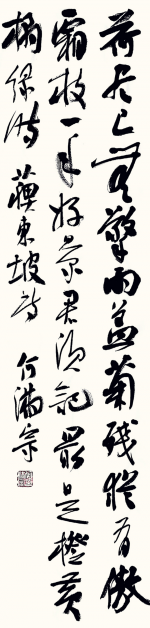 荷尽已無擎雨盖菊残猶有傲
霜枝一年好景君须记最是橙黄
橘绿时 蘓東坡诗 何满宗